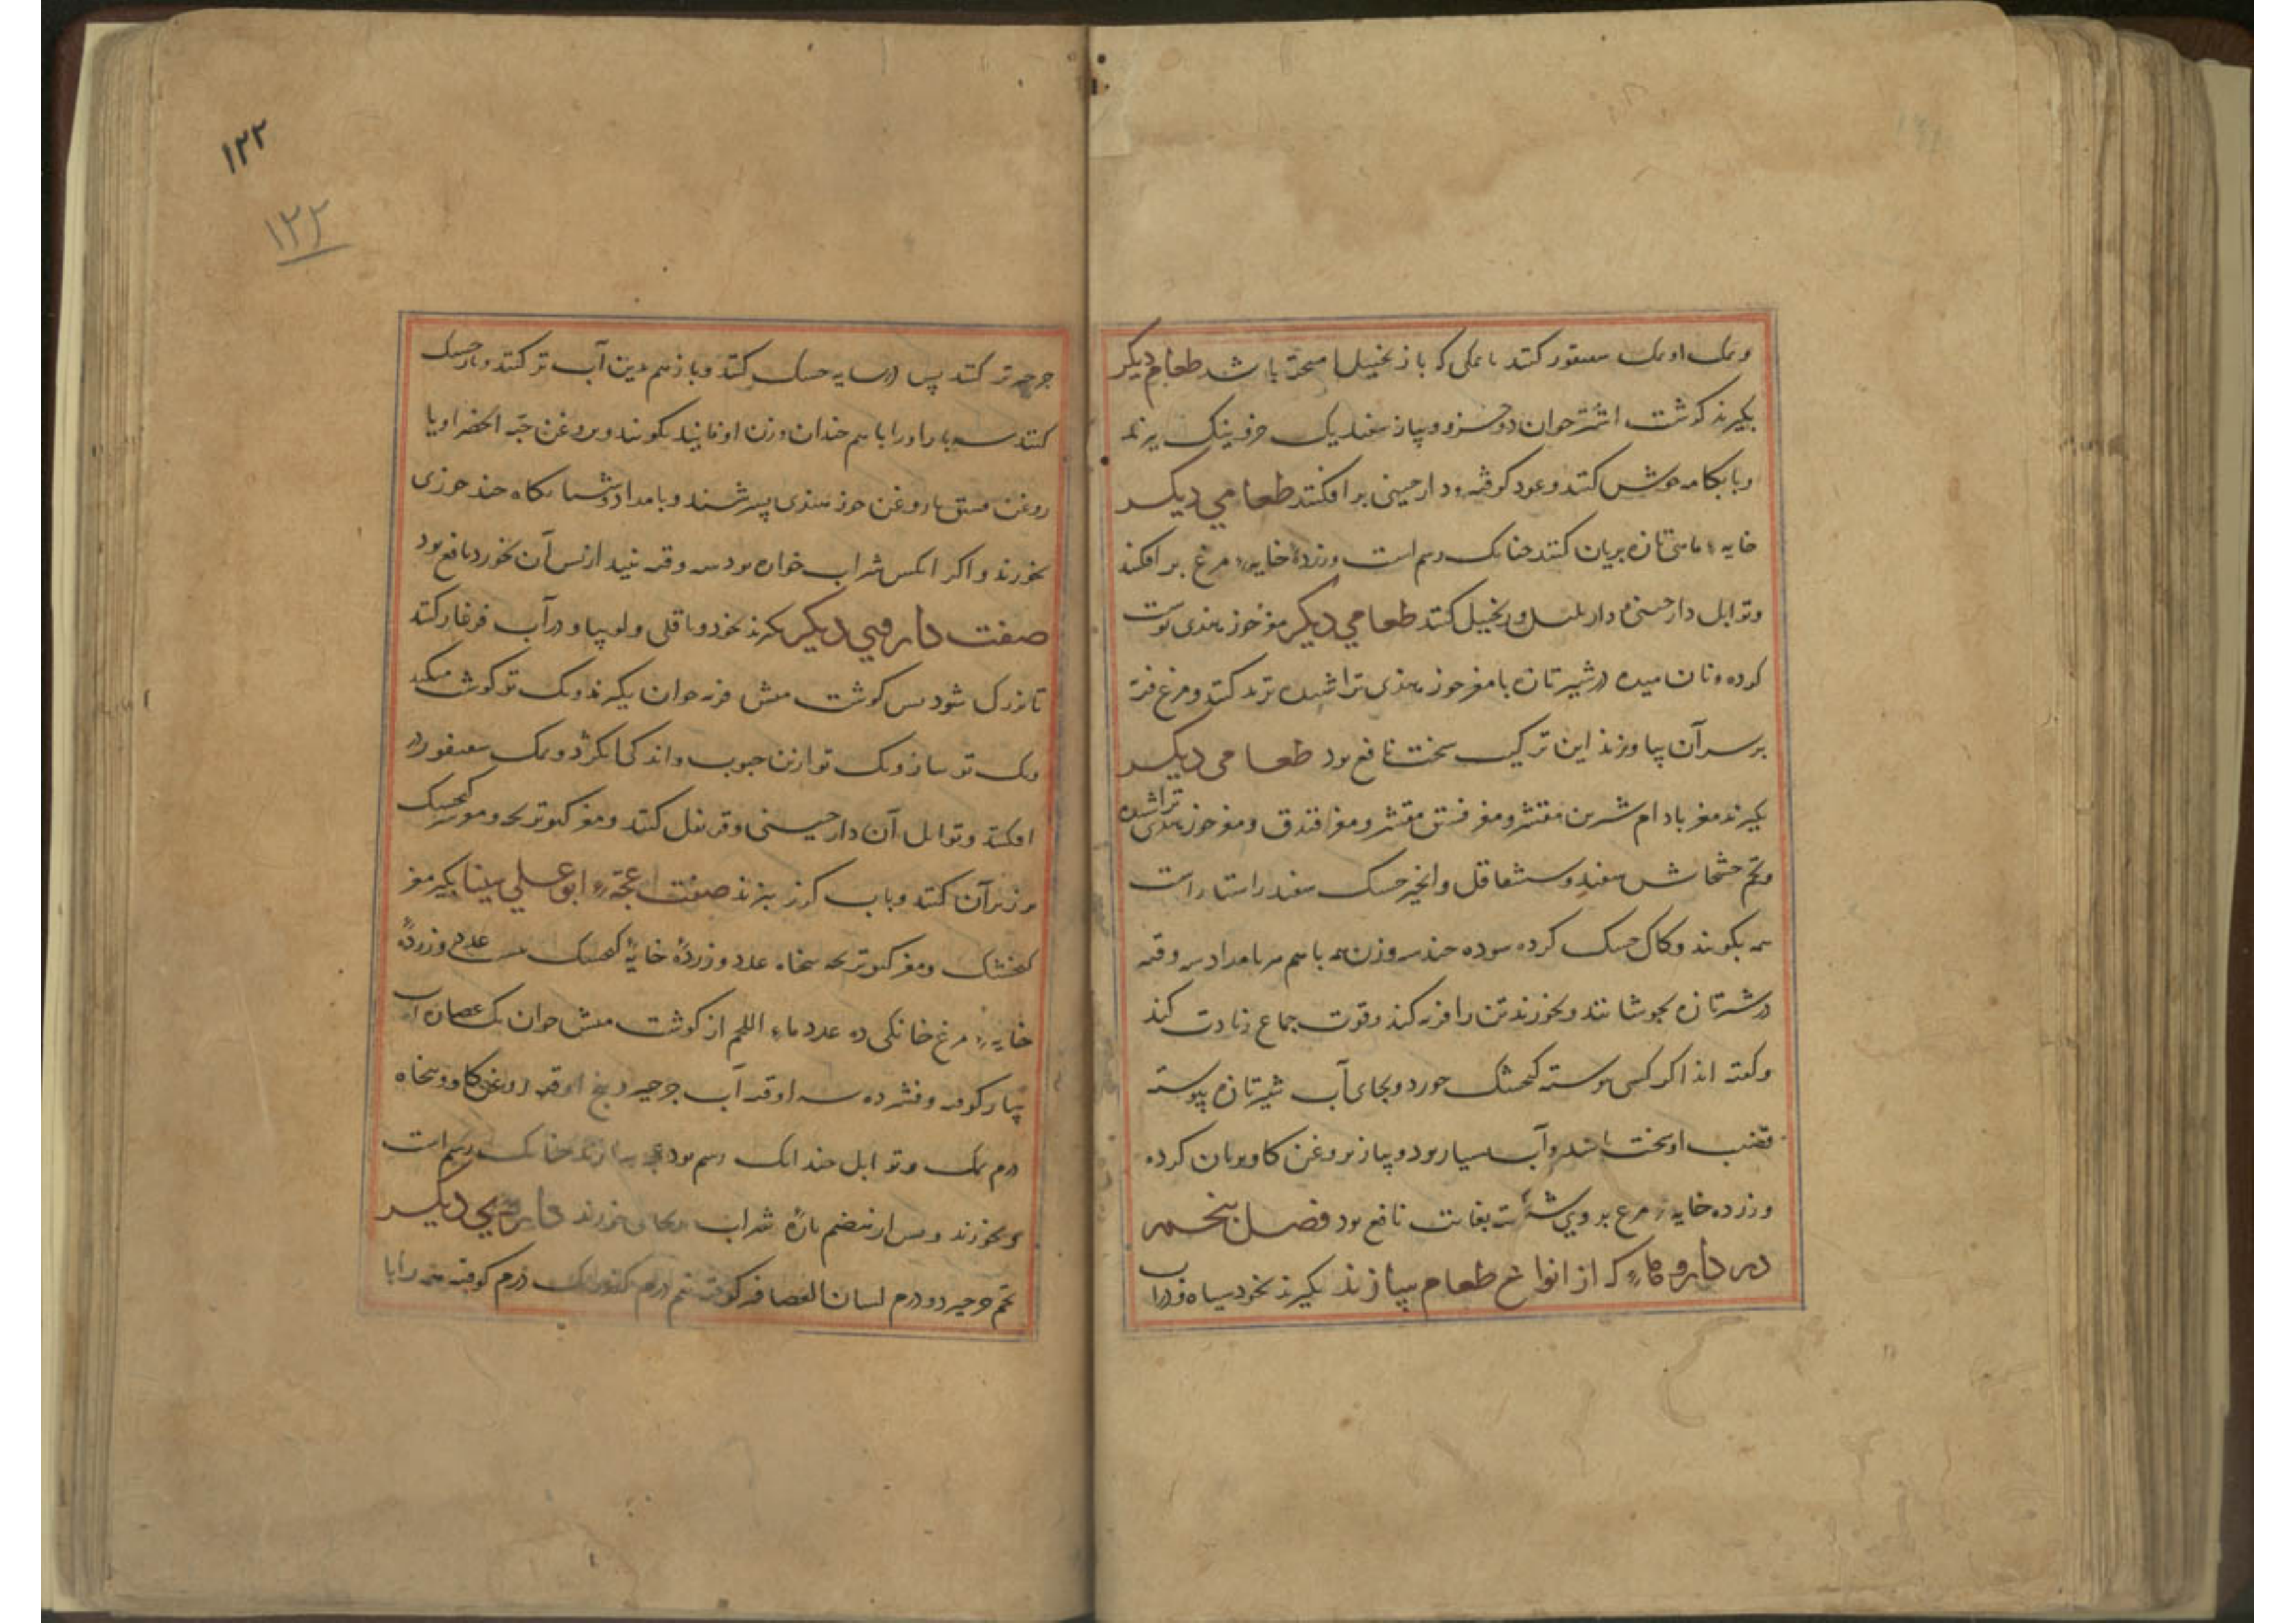 ونمک او نمک سقنقور کنند یا نمکی که با زنجبیل آمیخته باشد طعام دیکر
بکیرند کوشت اشتر جوان دو جزو و پیاز سفید یک جزو نیک بپزند
وبابکامه خوش کنند وعود کوفته ودارچینی برافکنند طعامی دیکر
خایهٔ ماهی تازه بریان کنند چنانک رسم است وزردهٔ خایهٔ مرغ برافکنند
وتوابل دارچینی و دارپلپل و زنجبیل کنند طعامی دیکر مغز جوز هندی پوست
کرده ونان میده در شیر تازه با مغز جوز هندی تراشیده ترید کنند ومرغ فربه
بر سر آن بیاویزند این ترکیب سخت نافع بود طعامی دیکر
بکیرند مغز بادام شیرین مقشر ومغز فستق مقشر ومغز فندق ومغز جوز هندی تراشیده
وتخم خشخاش سفید وشقاقل وانجیر خشک سفید راستاراست
همه بکوبند وکاک خشک کرده سوده چند سه وزن همه باهم هر بامداد سه وقیه
در شیر تازه بجوشانند وبخورند تن را فربه کند وقوت جماع زیادت کند
وکفته اند اکر کسی پیوسته کنجشک خورد وبجای آب شیر تازه پیوسته
قضیب او سخت باشد وآب بسیار بود وپیاز بروغن کاو بریان کرده
وزرده خایهٔ مرغ بر وی بغایت نافع بود فصل پنجم
در داروهاء که از انواع طعام سازند بکیرند نخود سیاه و در آب
جرجیر تر کنند پس در سایه خشک کنند وباز هم بدین آب تر کنند وباز خشک
کنند سه بار اورا با هم چندان وزن او فانید بکوبند وبروغن حبة الخضرا ویا
روغن فستق یا روغن جوز هندی بسرشند وبامداد وشبانکاه چند جوزی
بخورند واکر آنکس شراب خواره بود سه وقیه نبید از پس آن بخورد نافع بود
صفت داروی دیکر بکیرند نخود وباقلی ولوبیا ودر آب فرغار کنند
تا نزدک شود پس کوشت میش فربه جوان بکیرند ویک تو کوشت میکنند
ویک تو پیاز ویک تو ازین حبوب واندکی انکژد ونمک سقنقور در
افکنند وتوابل آن دارچینی وقرنفل کنند ومغز کبوتر بچه ومغز سر کنجشک
بر زبر آن کنند وباب کرز بپزند صفت عجهٔ ابو علی سینا بکیرند مغز
کنجشک ومغز کبوتر بچه پنجاه عدد وزردهٔ خایهٔ کنجشک بیست عدد وزردهٔ
خایهٔ مرغ خانکی ده عدد ماء اللحم از کوشت میش جوان یک عصاره آب
پیاز کوفته وفشرده سه اوقیه آب جرجیر وپنج اوقیه روغن کاو وپنجاه
درم نمک وتوابل چندانک رسم بود عجه سازند چنانک رسم است
وبخورند وپس از هضم پارهٔ شراب ریحانی خورند داروی دیکر
تخم جرجیر دو درم لسان العصافیر کوفته نیم درم کوفته همه را با